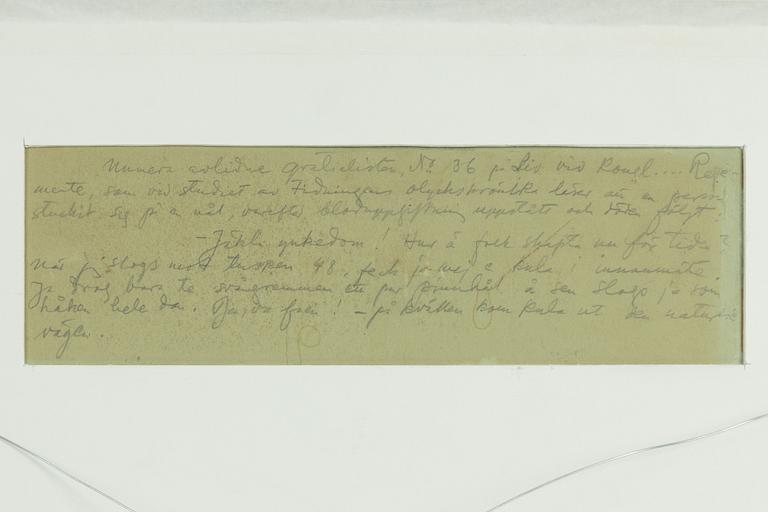 Numera avlidne gratialisten, No 36 på Liv vid Kongl.... Rege-
mente, som vid studiet av Tidningens olyckskrönika läser att en person
stuckit sig på en nål, varefter bloduppgiftning uppstått och döden följt.
– Jäkli ynkedom! Hur ä folk skapta nu för tiden?
När jag slogs mot tysken 48, feck ja mej e kula i innanmäte.
Ja drog bara te svångremmen ett par hål å sen slogs ja som
håken hele da. Jo, da fan! – på kvällen kom kula ut den naturlie
vägen.